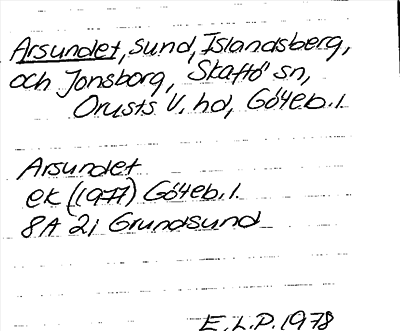 Arsundet, sund, Islandsberg,
och Jonsborg, Skaftö sn,
Orusts V. hd, Göteb. l.
Arsundet
ek (1977) Göteb. l.
8A 2i Grundsund
E.L.P. 1978